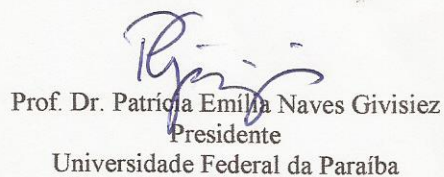 Prof. Dr. Patrícia Emília Naves Givisiez
Presidente
Universidade Federal da Paraíba